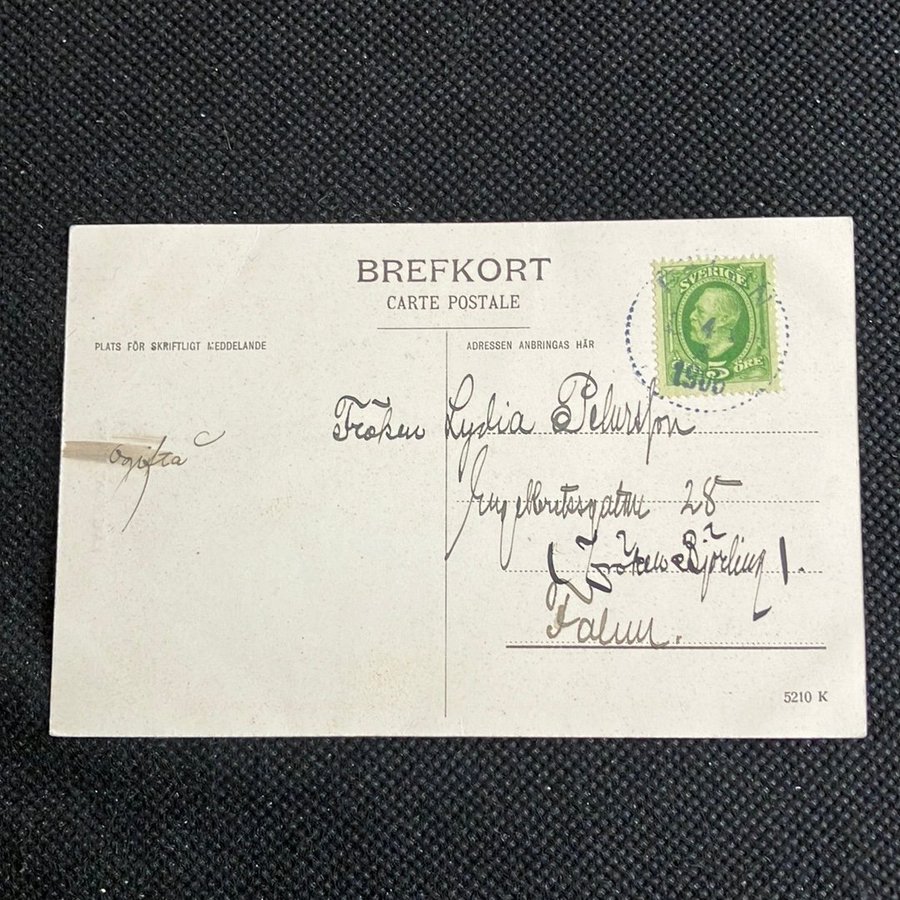 BREFKORT
CARTE POSTALE
SVERIGE
4
1906
5 ÖRE
PLATS FÖR SKRIFTLIGT MEDDELANDE
ADRESSEN ANBRINGAS HÄR
Fröken Lydia Petersson
Engelbrektsgatan 28
Fröken Björling
Falun.
5210 K